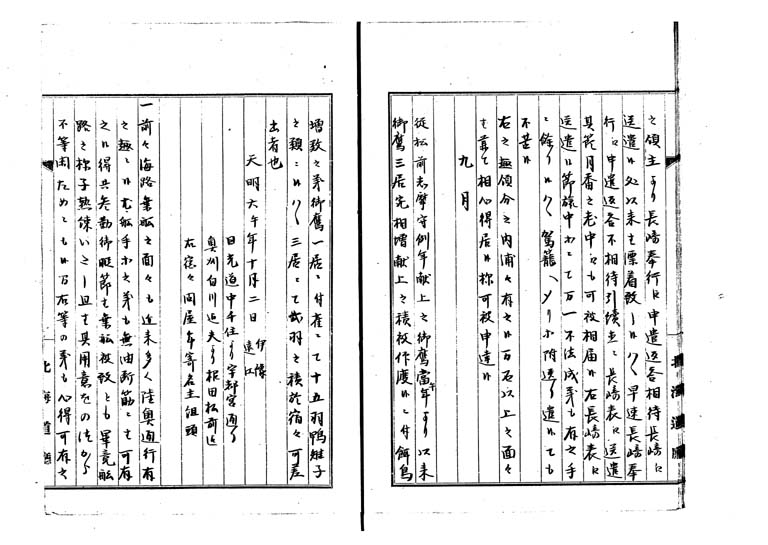 之領主より長崎奉行に申遣返答相待長崎に
送遣候処以来も漂着致し候ハヽ早速長崎奉
行に申遣返答不相待引続至て長崎表に送遣
其段月番之老中にも可被相届候右長崎表に
送遣候節旅中ニて万一不法成事も有之手
ニ余り候ハヽ駕籠へ入附送り遣候ても
不苦候
右之通領分之内浦々有之候万石以上之面々
も兼て相心得居候様可被申達候
九月
従松前志摩守例年献上之御鷹当年より以来
御鷹三居充相増献上之積被仰渡候ニ付餌鳥
増致之事御鷹一居ニ付雀ニて十五羽鴨雉子
之類ニ候ハヽ三居ニて弐羽之積於宿々可差
出者也
天明六午年十月二日 伊豫
遠江
日光道中千住より宇都宮通り
奥州白川近夫より根田松前迄
右宿々問屋年寄名主組頭
一前々海路乗船之面々も近来多く陸奥通行有
之趣ニ候船手ニ之事も無油断筋ニも可有
之候得共参勤御暇節も乗船被致とも畢竟船
路之様子熟練いたし且も其用意をの
不等閑ためとも候万石等の事も心得可有之
北海道廳
北海道廳